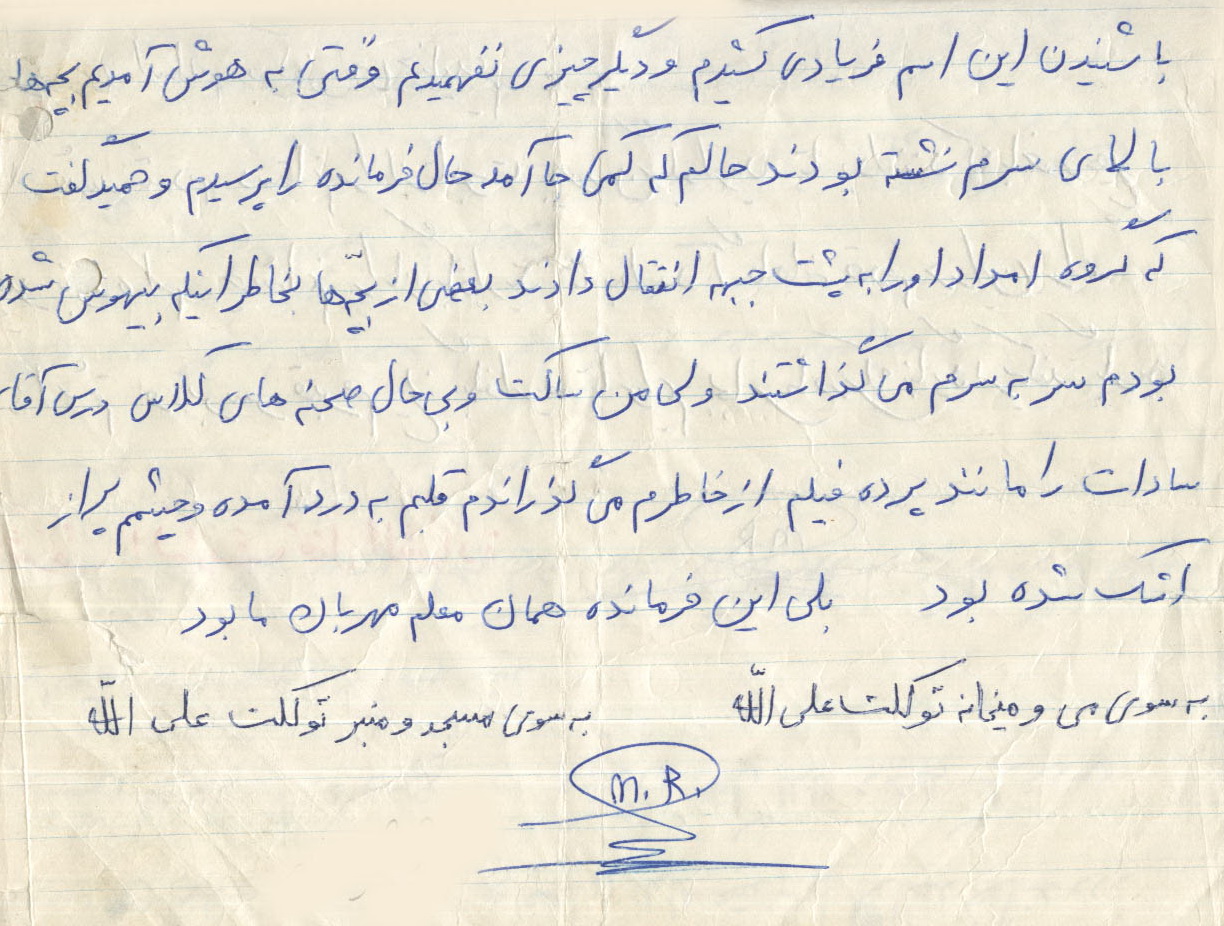 با شنیدن این اسم فریادی کشیدم و دیگر چیزی نفهمیدم وقتی به هوش آمدیم بچه‌ها
بالای سرم نشسته بودند حالم که کمی جا آمد حال فرمانده را پرسیدم و حمید گفت
که گروه امداد او را به پشت جبهه انتقال دادند بعضی از بچّه‌ها بخاطر اینکه بیهوش شده
بودم سر به سرم می گذاشتند ولی من ساکت و بی حال صحنه های کلاس درس آقای
سادات را مانند پرده فیلم از خاطرم می گذراندم قلبم به درد آمده و چشم پر از
اشک شده بود بلی این فرمانده همان معلم مهربان ما بود
به سوی می و میخانه توکلت علی اللّه به سوی مسجد و منبر توکلت علی اللّه
M.R.